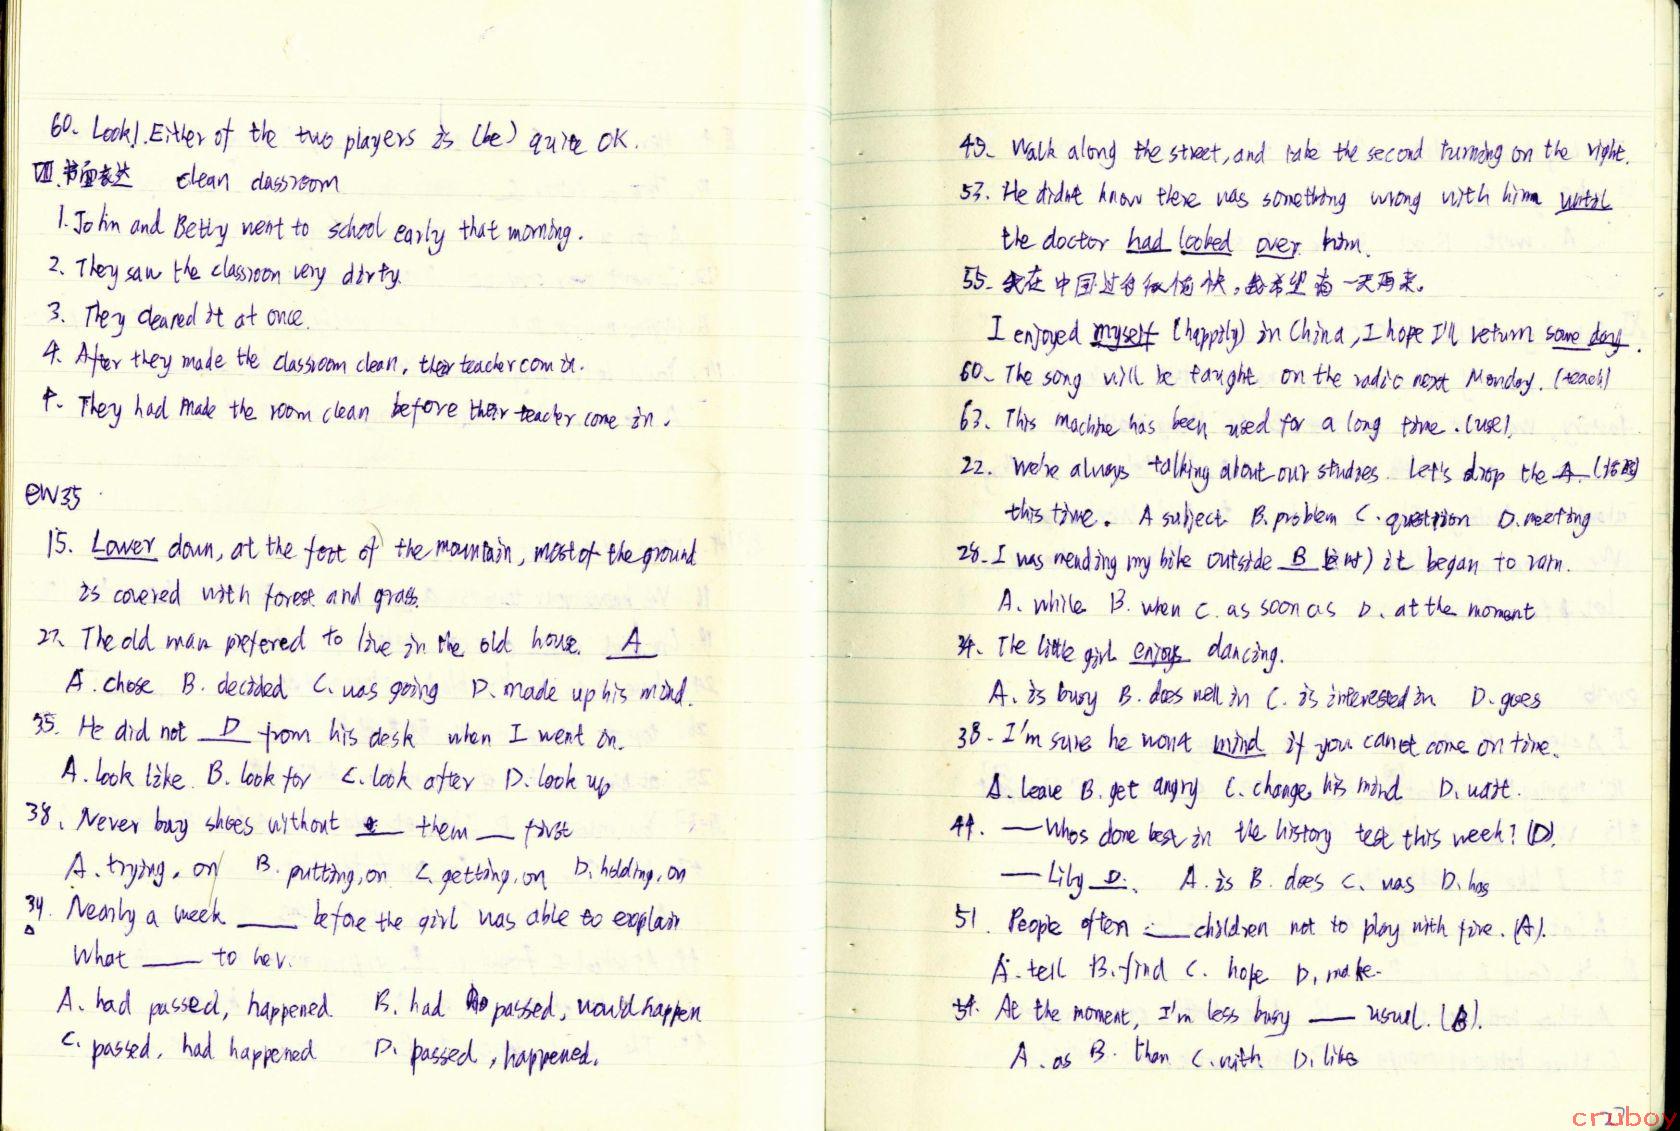 60. Look! Either of the two players is (be) quite OK.
VII. 书面表达 clean classroom
1. John and Betty went to school early that morning.
2. They saw the classroom very dirty.
3. They cleaned it at once.
4. After they made the classroom clean, their teacher com in.
They had made the room clean before their teacher come in.
EW35
15. Lower down, at the foot of the mountain, most of the ground
is covered with forest and grass.
27. The old man prefered to live in the old house. A
A. chose B. decided C. was going D. made up his mind.
35. He did not D from his desk when I went in.
A. look like B. look for C. look after D. look up
38. Never buy shoes without ___ them ___ first
A. trying, on B. putting, on C. getting, on D. holding, on
34. Nearly a week ___ before the girl was able to explain
What ___ to her.
A. had passed, happened B. had passed, would happen
C. passed, had happened D. passed, happened.
49. Walk along the street, and take the second turning on the right.
53. He didn't know there was something wrong with him until
the doctor had looked over him.
55. 我在中国过得很愉快，我希望有一天再来。
I enjoyed myself (happily) in China, I hope I'll return some day.
60. The song will be taught on the radio next Monday. (teach)
63. This machine has been used for a long time. (use)
22. We're always talking about our studies. Let's drop the A. (话题)
this time. A subject B. problem C. question D. meeting
28. I was mending my bike outside B it began to rain.
A. while B. when C. as soon as D. at the moment
34. The little girl enjoys dancing.
A. is busy B. does well in C. is interested in D. goes
38. I'm sure he won't mind if you can't come on time.
A. leave B. get angry C. change his mind D. wait.
44. —Who's done best in the history test this week? (D)
—Lily D. A. is B. does C. was D. has
51. People often ___ children not to play with fire. (A).
A. tell B. find C. hope D. make.
At the moment, I'm less busy ___ usual. (B).
A. as B. than C. with D. like
cruboy